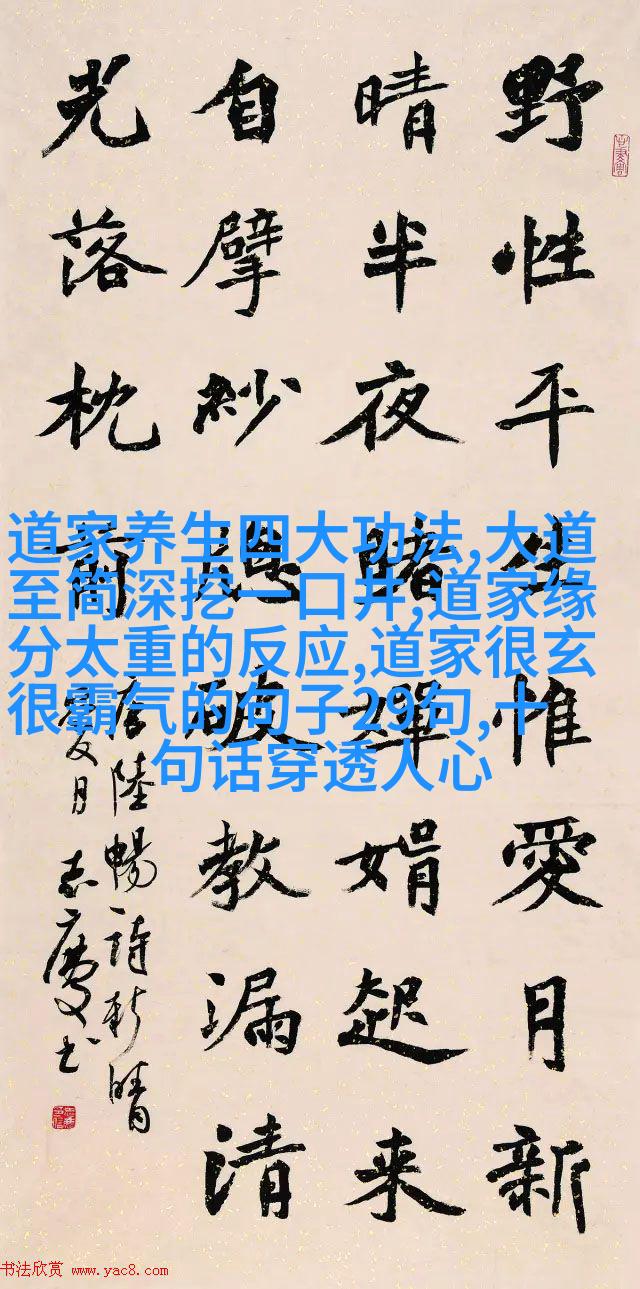 野性平生惟愛月新
晴半夜睹嬋娟起来
自擘紗窓破教漏清
光落枕前
唐陸暢詩新晴
愛月 志慶书
道家养生四大功法,大道
至简深挖一口井,道家缘
分太重的反应,道家很玄
很霸气的句子29句,十
句话穿透人心
书法欣赏 www.yac8.com